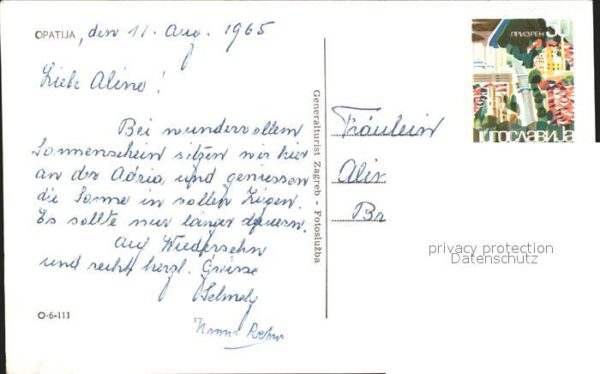 OPATIJA, den 11. Aug. 1965
Liebe Aline!
Bei wundervollem
Sonnenschein sitzen wir hier
an der Adria und geniessen
die Sonne in vollen Zügen.
Es sollte nur länger dauern.
Auf Wiedersehn
und recht herzl. Grüsse
O-6-111
Generalturist Zagreb - Fotoslužba
ПРИЗРЕН 50
ЈУГОСЛАВИЈА
Fräulein
Alin
Br
privacy protection
Datenschutz